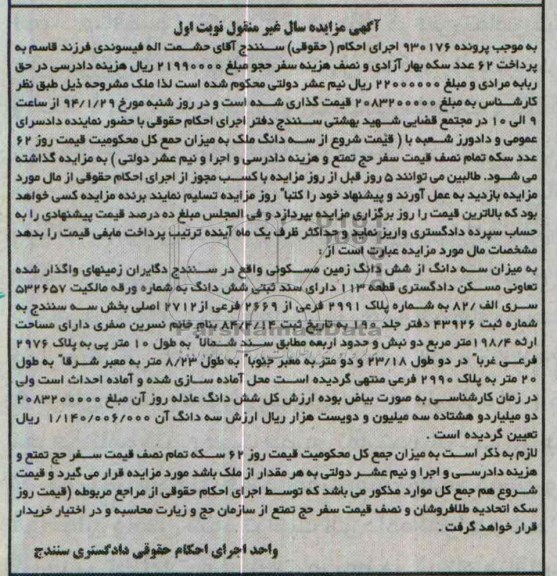 آگهی مزایده سال غیر منقول نوبت اول
به موجب پرونده ۹۳۰۱۷۶ اجرای احکام ( حقوقی) سنندج آقای حشمت اله فیسوندی فرزند قاسم به
پرداخت ۶۲ عدد سکه بهار آزادی و نصف هزینه سفر حجو مبلغ ۲۱۹۹۰۰۰۰ ریال هزینه دادرسی در حق
ربابه مرادی و مبلغ ۲۲۰۰۰۰۰۰ ریال نیم عشر دولتی محکوم شده است لذا ملک مشروحه ذیل طبق نظر
کارشناس به مبلغ ۲۰۸۳۲۰۰۰۰۰ قیمت گذاری شده است و در روز شنبه مورخ ۹۴/۱/۲۹ از ساعت
۹ الی ۱۰ در مجتمع قضایی شهید بهشتی سنندج دفتر اجرای احکام حقوقی با حضور نماینده دادسرای
عمومی و دادورز شعبه با ( قیمت شروع از سه دانگ ملک به میزان جمع کل محکومیت قیمت روز ۶۲
عدد سکه تمام نصف قیمت سفر حج تمتع و هزینه دادرسی و اجرا و نیم عشر دولتی ) به مزایده گذاشته
می شود. طالبین می توانند ۵ روز قبل از روز مزایده با کسب مجوز از اجرای احکام حقوقی از مال مورد
مزایده بازدید به عمل آورند و پیشنهاد خود را کتباً روز مزایده تسلیم نمایند برنده مزایده کسی خواهد
بود که بالاترین قیمت را روز برگزاری مزایده بپردازد و فی المجلس مبلغ ده درصد قیمت پیشنهادی را به
حساب سپرده دادگستری واریز نماید و حداکثر ظرف یک ماه آینده ترتیب پرداخت مابقی قیمت را بدهد
مشخصات مال مورد مزایده عبارت است از :
به میزان سه دانگ از شش دانگ زمین مسکونی واقع در سنندج دگایران زمینهای واگذار شده
تعاونی مسکن دادگستری قطعه ۱۱۳ دارای سند ثبتی شش دانگ به شماره ورقه مالکیت ۵۳۲۶۵۷
سری الف /۸۲ به شماره پلاک ۲۹۹۱ فرعی از ۲۶۶۹ فرعی از ۲۷۱۲ اصلی بخش سه سنندج به
شماره ثبت ۴۳۹۲۶ دفتر جلد ۱۹۰ به تاریخ ثبت ۸۴/۲/۱۴ بنام خانم نسرین صفری دارای مساحت
ارثه ۱۹۸/۴ متر مربع دو نبش و حدود اربعه مطابق سند شمالاً به طول ۱۰ متر پی به پلاک ۲۹۷۶
فرعی غرباً در دو طول ۲۳/۱۸ و دو متر به معبر جنوباً به طول ۸/۲۳ متر به معبر شرقاً به طول
۲۰ متر به پلاک ۲۹۹۰ فرعی منتهی گردیده است محل آماده سازی شده و آماده احداث است ولی
در زمان کارشناسی به صورت بیاض بوده ارزش کل شش دانگ عادله روز آن مبلغ ۲۰۸۳۲۰۰۰۰۰
دو میلیاردو هشتاده سه میلیون و دویست هزار ریال ارزش سه دانگ آن ۱/۱۴۰/۰۰۶/۰۰۰ ریال
تعیین گردیده است .
لازم به ذکر است به میزان جمع کل محکومیت قیمت روز ۶۲ سکه تمام نصف قیمت سفر حج تمتع و
هزینه دادرسی و اجرا و نیم عشر دولتی به هر مقدار از ملک باشد مورد مزایده قرار می گیرد و قیمت
شروع هم جمع کل موارد مذکور می باشد که توسط اجرای احکام حقوقی از مراجع مربوطه (قیمت روز
سکه اتحادیه طلافروشان و نصف قیمت سفر حج تمتع از سازمان حج و زیارت محاسبه و در اختیار خریدار
قرار خواهد گرفت .
واحد اجرای احکام حقوقی دادگستری سنندج